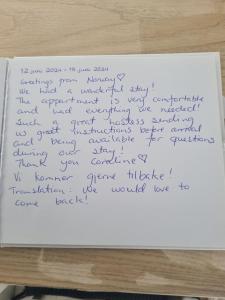 12 juni 2024 - 19 juni 2024
Greetings from Norway♡
We had a wonderful stay!
The appartment is very comfortable
and had everything we needed!
Such a great hostess sending
us great instructions before arrival
and being available for questions
during our stay!
Thank you Caroline♡
Vi kommer gjerne tilbake!
Translation: We would love to
come back!